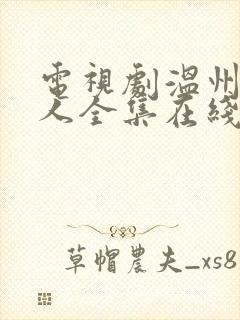 電視劇溫州
人全集在綫
草帽農夫_xs8